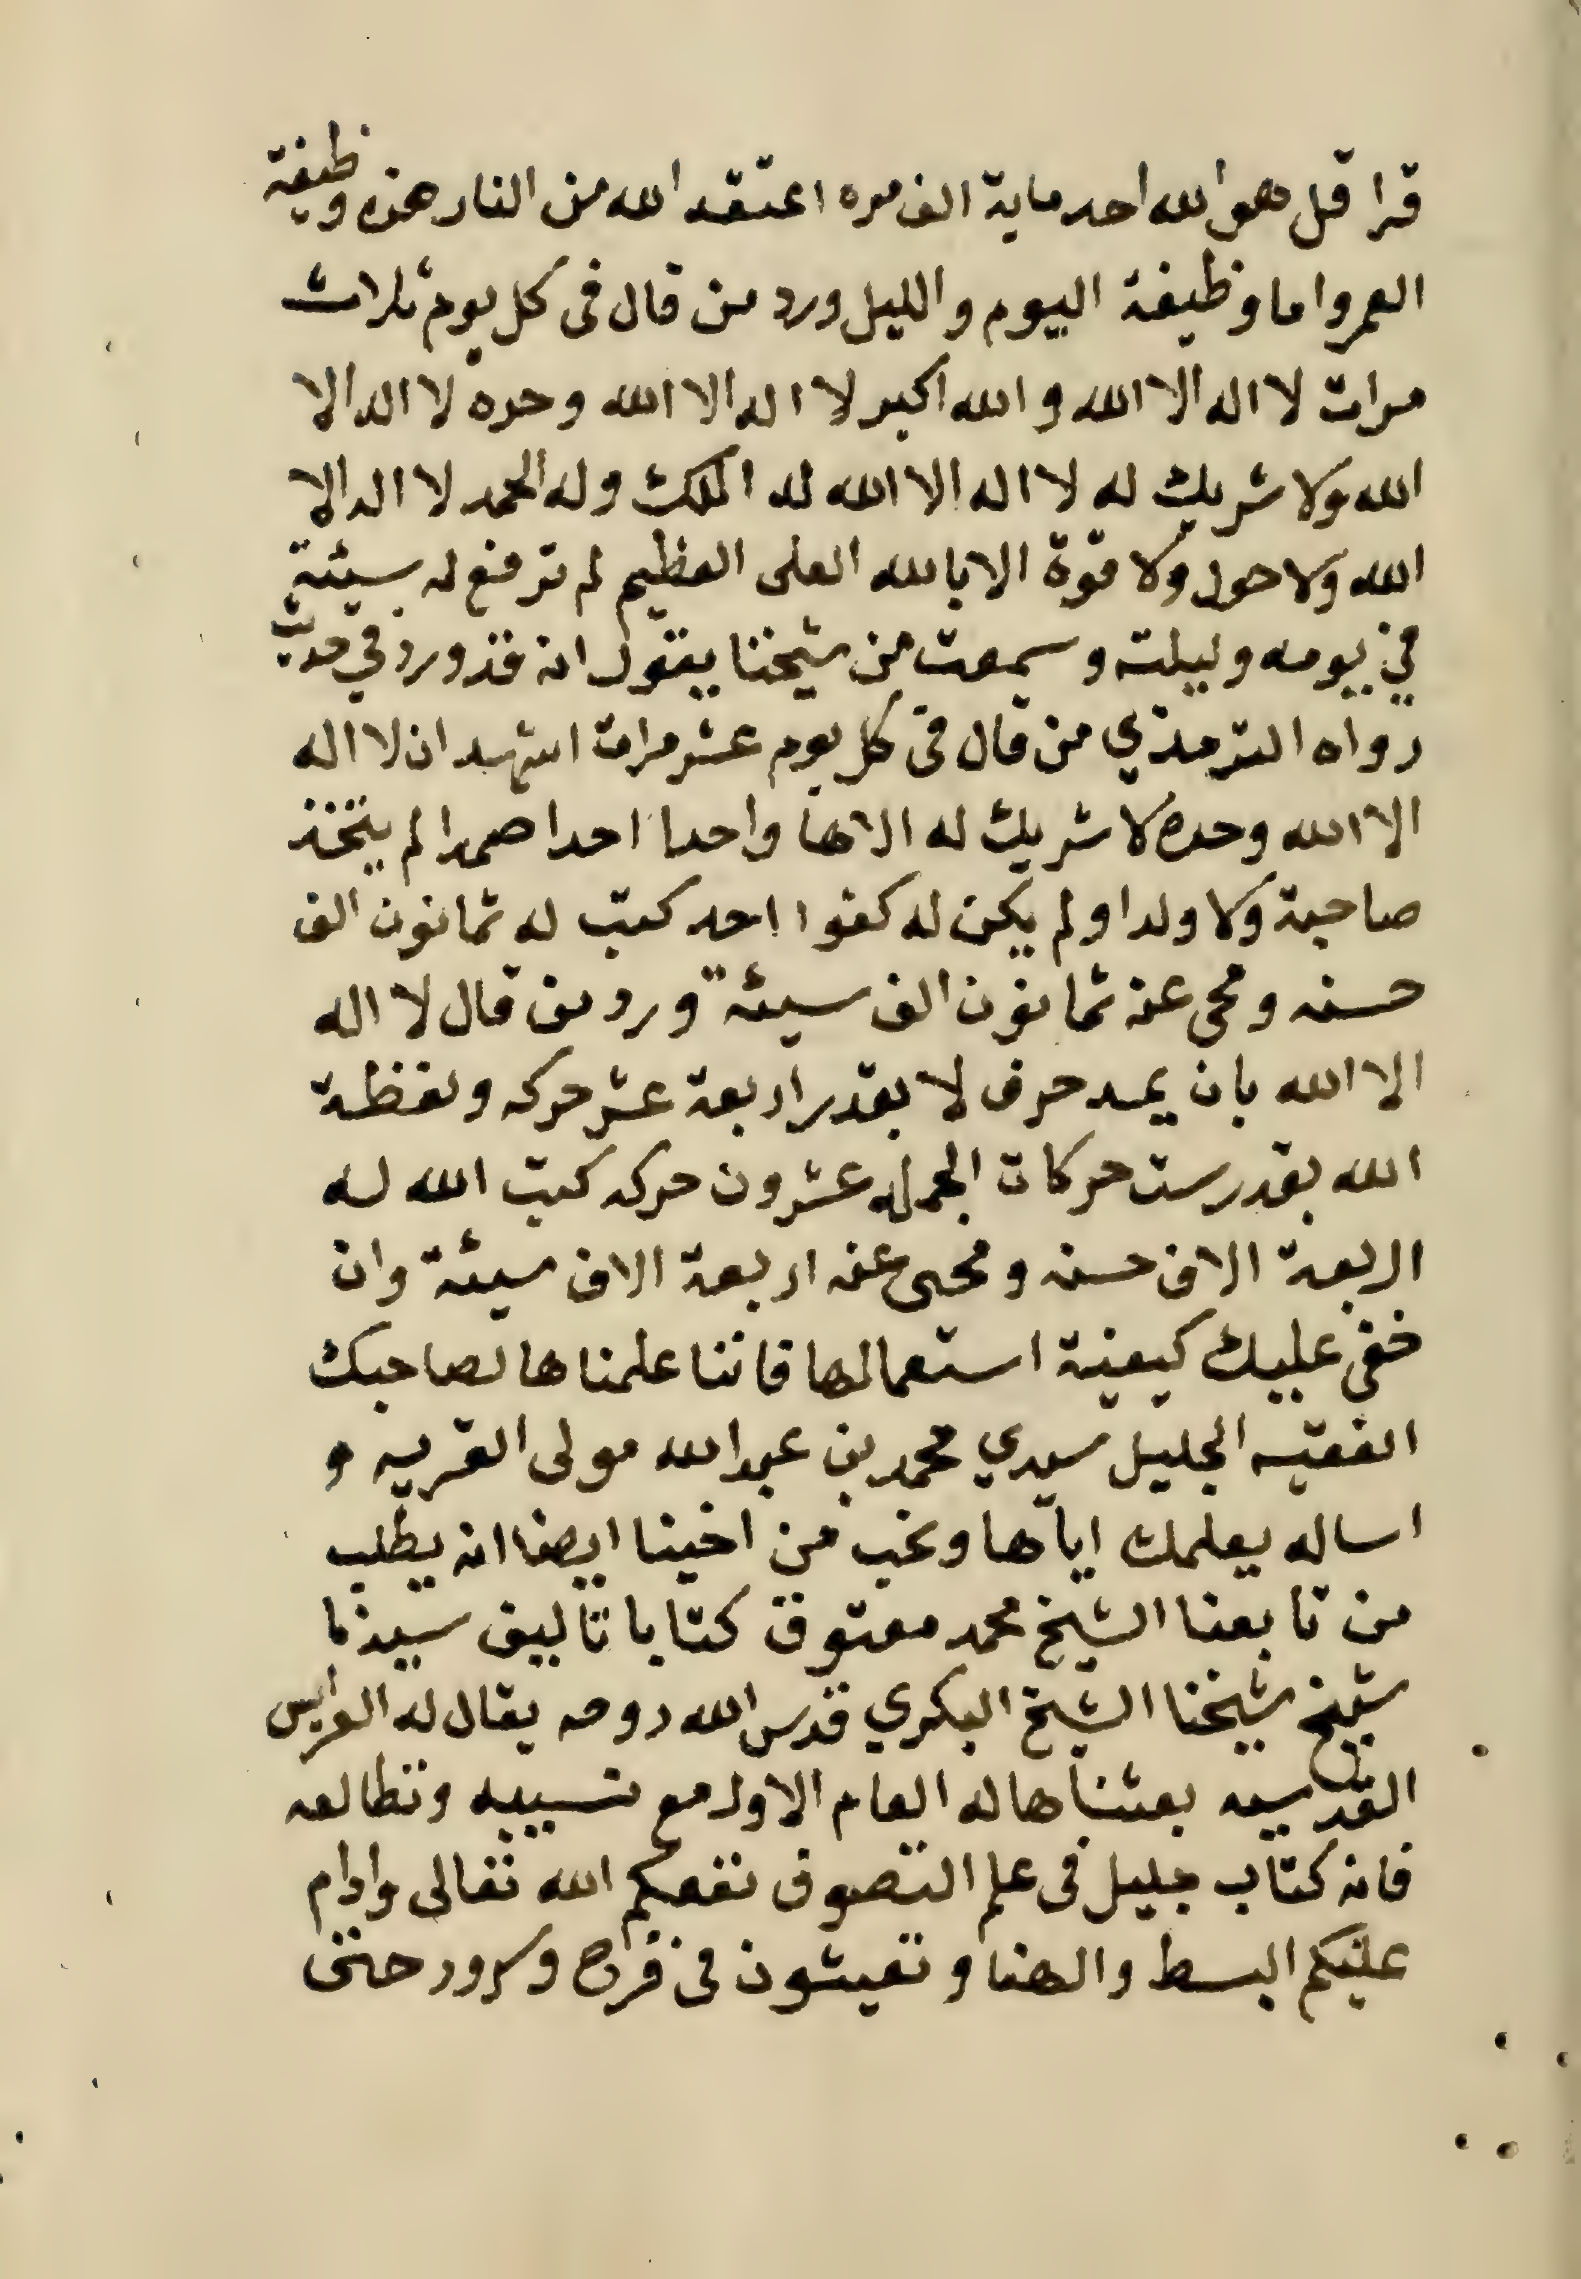 قرا قل هو الله احد ماية الف مره اعتقه الله من النار هذه وظيفة
العمر واما وظيفة اليوم والليل ورد من قال فى كل يوم ثلاث
مرات لا اله الا الله والله اكبر لا اله الا الله وحده لا اله الا
الله ولا شريك له لا اله الا الله له الملك وله الحمد لا اله الا
الله ولا حول ولا قوة الا بالله العلى العظيم لم ترفع له سيئة
في يومه وليلته وسمعت من شيخنا يقول انه قد ورد في حديث
رواه الترمذي من قال فى كل يوم عشر مرات اشهد ان لا اله
الا الله وحده لا شريك له الاها واحدا احدا صمدا لم يتخذ
صاحبة ولا ولدا ولم يكن له كفوا احد كتب له ثمانون الف
حسنه ومحى عنه ثمانون الف سيئة ورد من قال لا اله
الا الله بان يمد حرف لا بقدر اربعة عشر حركه ولفظة
الله بقدر ست حركات الجمله عشرون حركه كتب الله له
اربعة الاف حسنه ومحى عنه اربعة الاف سيئة وان
خفى عليك كيفية استعمالها فاننا علمناها لصاحبك
الفقيه الجليل سيدي محمد بن عبد الله مولى القريه و
اساله يعلمك اياها ونحب من اخينا ايضا انه يطلب
من تابعنا الشيخ محمد معتوق كتابا تاليف سيدنا
شيخ شيخنا الشيخ البكري قدس الله روحه يقال له العرايس
القدسيه بعثناها له العام الاول مع نسيبه وتطالعه
فانه كتاب جليل فى علم التصوف نفعكم الله تعالى وادام
عليكم البسط والهنا وتعيشون فى فرح وسرور حتى